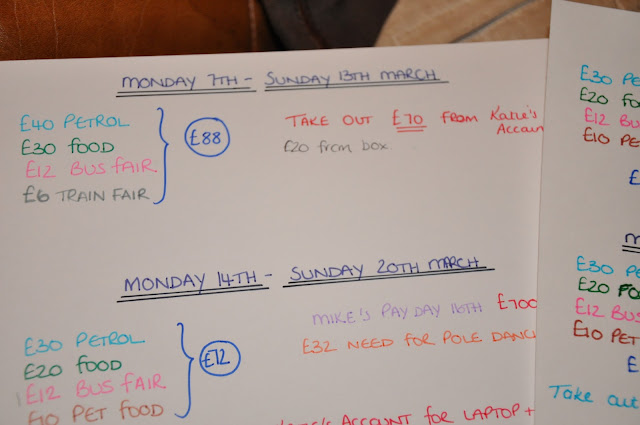 MONDAY 7TH - SUNDAY 13TH MARCH
£40 PETROL
£30 FOOD
£12 BUS FAIR
£6 TRAIN FAIR
£88
TAKE OUT £70 FROM Katie's
Accoun
£20 from box.
MONDAY 14TH - SUNDAY 20TH MARCH
£30 PETROL
£20 FOOD
£12 BUS FAIR
£10 PET FOOD
£72
MIKE'S PAY DAY 16TH £700
£32 NEED FOR POLE DANC
ACCOUNT FOR LAPTOP +
£30 PE
£20 FO
£12 BU
£10 PE
£
M
£30 PE
£20 FO
£12 BUS
£10 PET
£
Take out